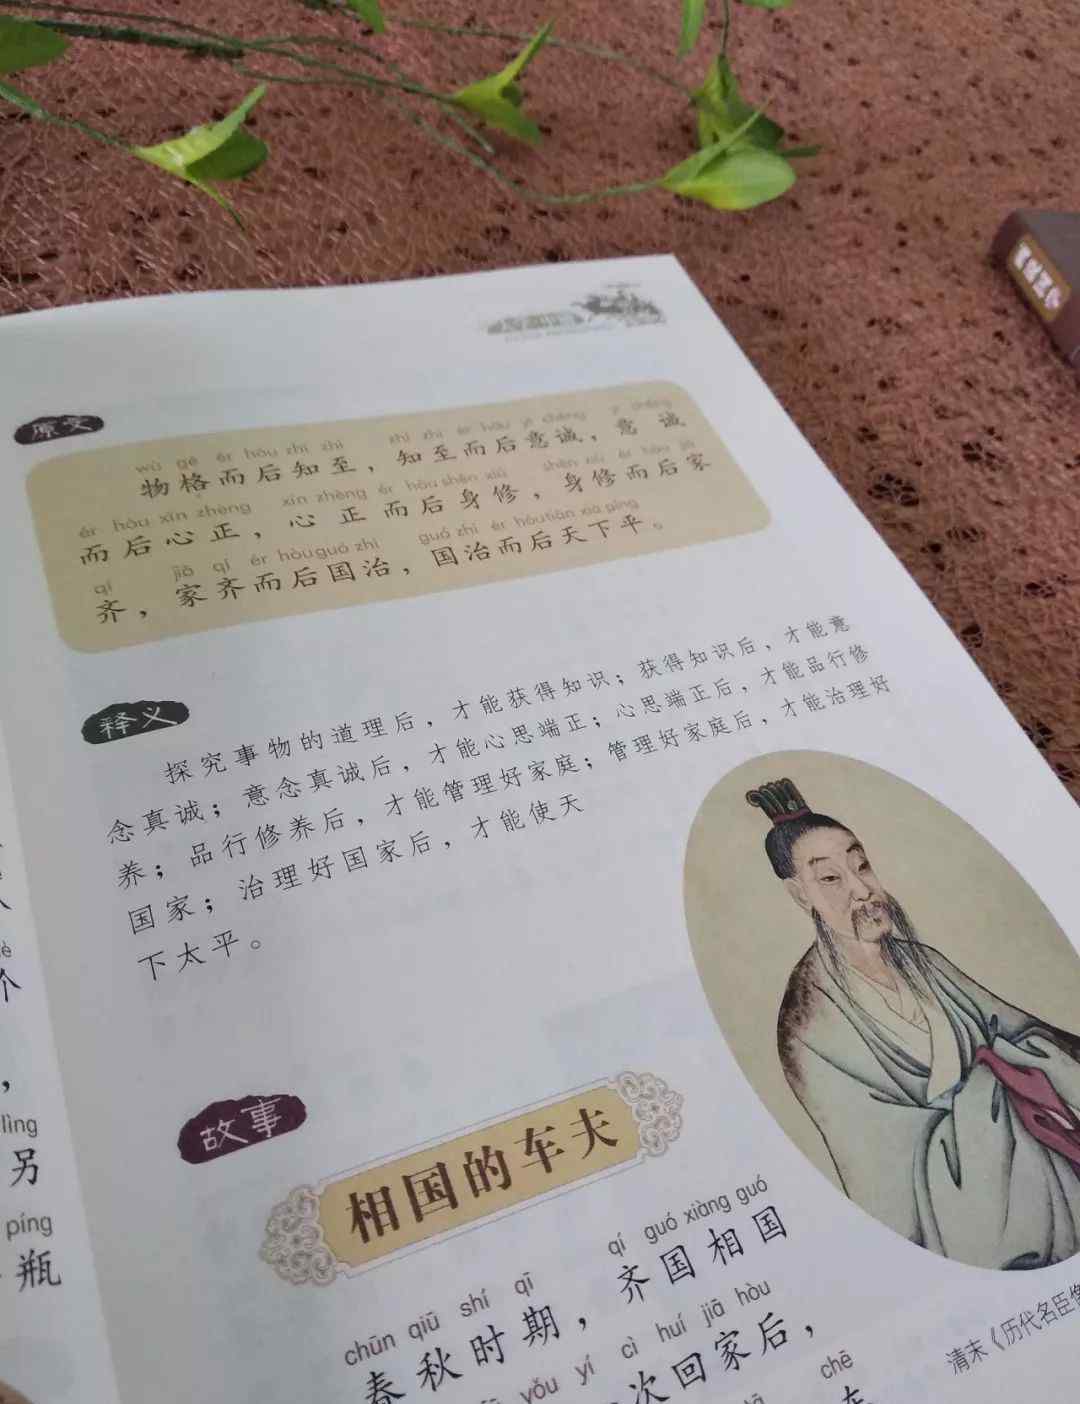 原文
wù gé ér hòu zhī zhì zhī zhì ér hòu yì chéng yì chéng
物格而后知至，知至而后意诚，意诚
ér hòu xīn zhèng xīn zhèng ér hòu shēn xiū shēn xiū ér hòu jiā
而后心正，心正而后身修，身修而后家
qí jiā qí ér hòu guó zhì guó zhì ér hòu tiān xià píng
齐，家齐而后国治，国治而后天下平。
释义
探究事物的道理后，才能获得知识；获得知识后，才能意
念真诚；意念真诚后，才能心思端正；心思端正后，才能品行修
养；品行修养后，才能管理好家庭；管理好家庭后，才能治理好
国家；治理好国家后，才能使天
下太平。
故事
相国的车夫
chūn qiū shí qī qí guó xiàng guó
春秋时期，齐国相国
yǒu yí cì huí jiā hòu chē
次回家后，
清末《历代名臣像
个
lìng
另
píng
瓶